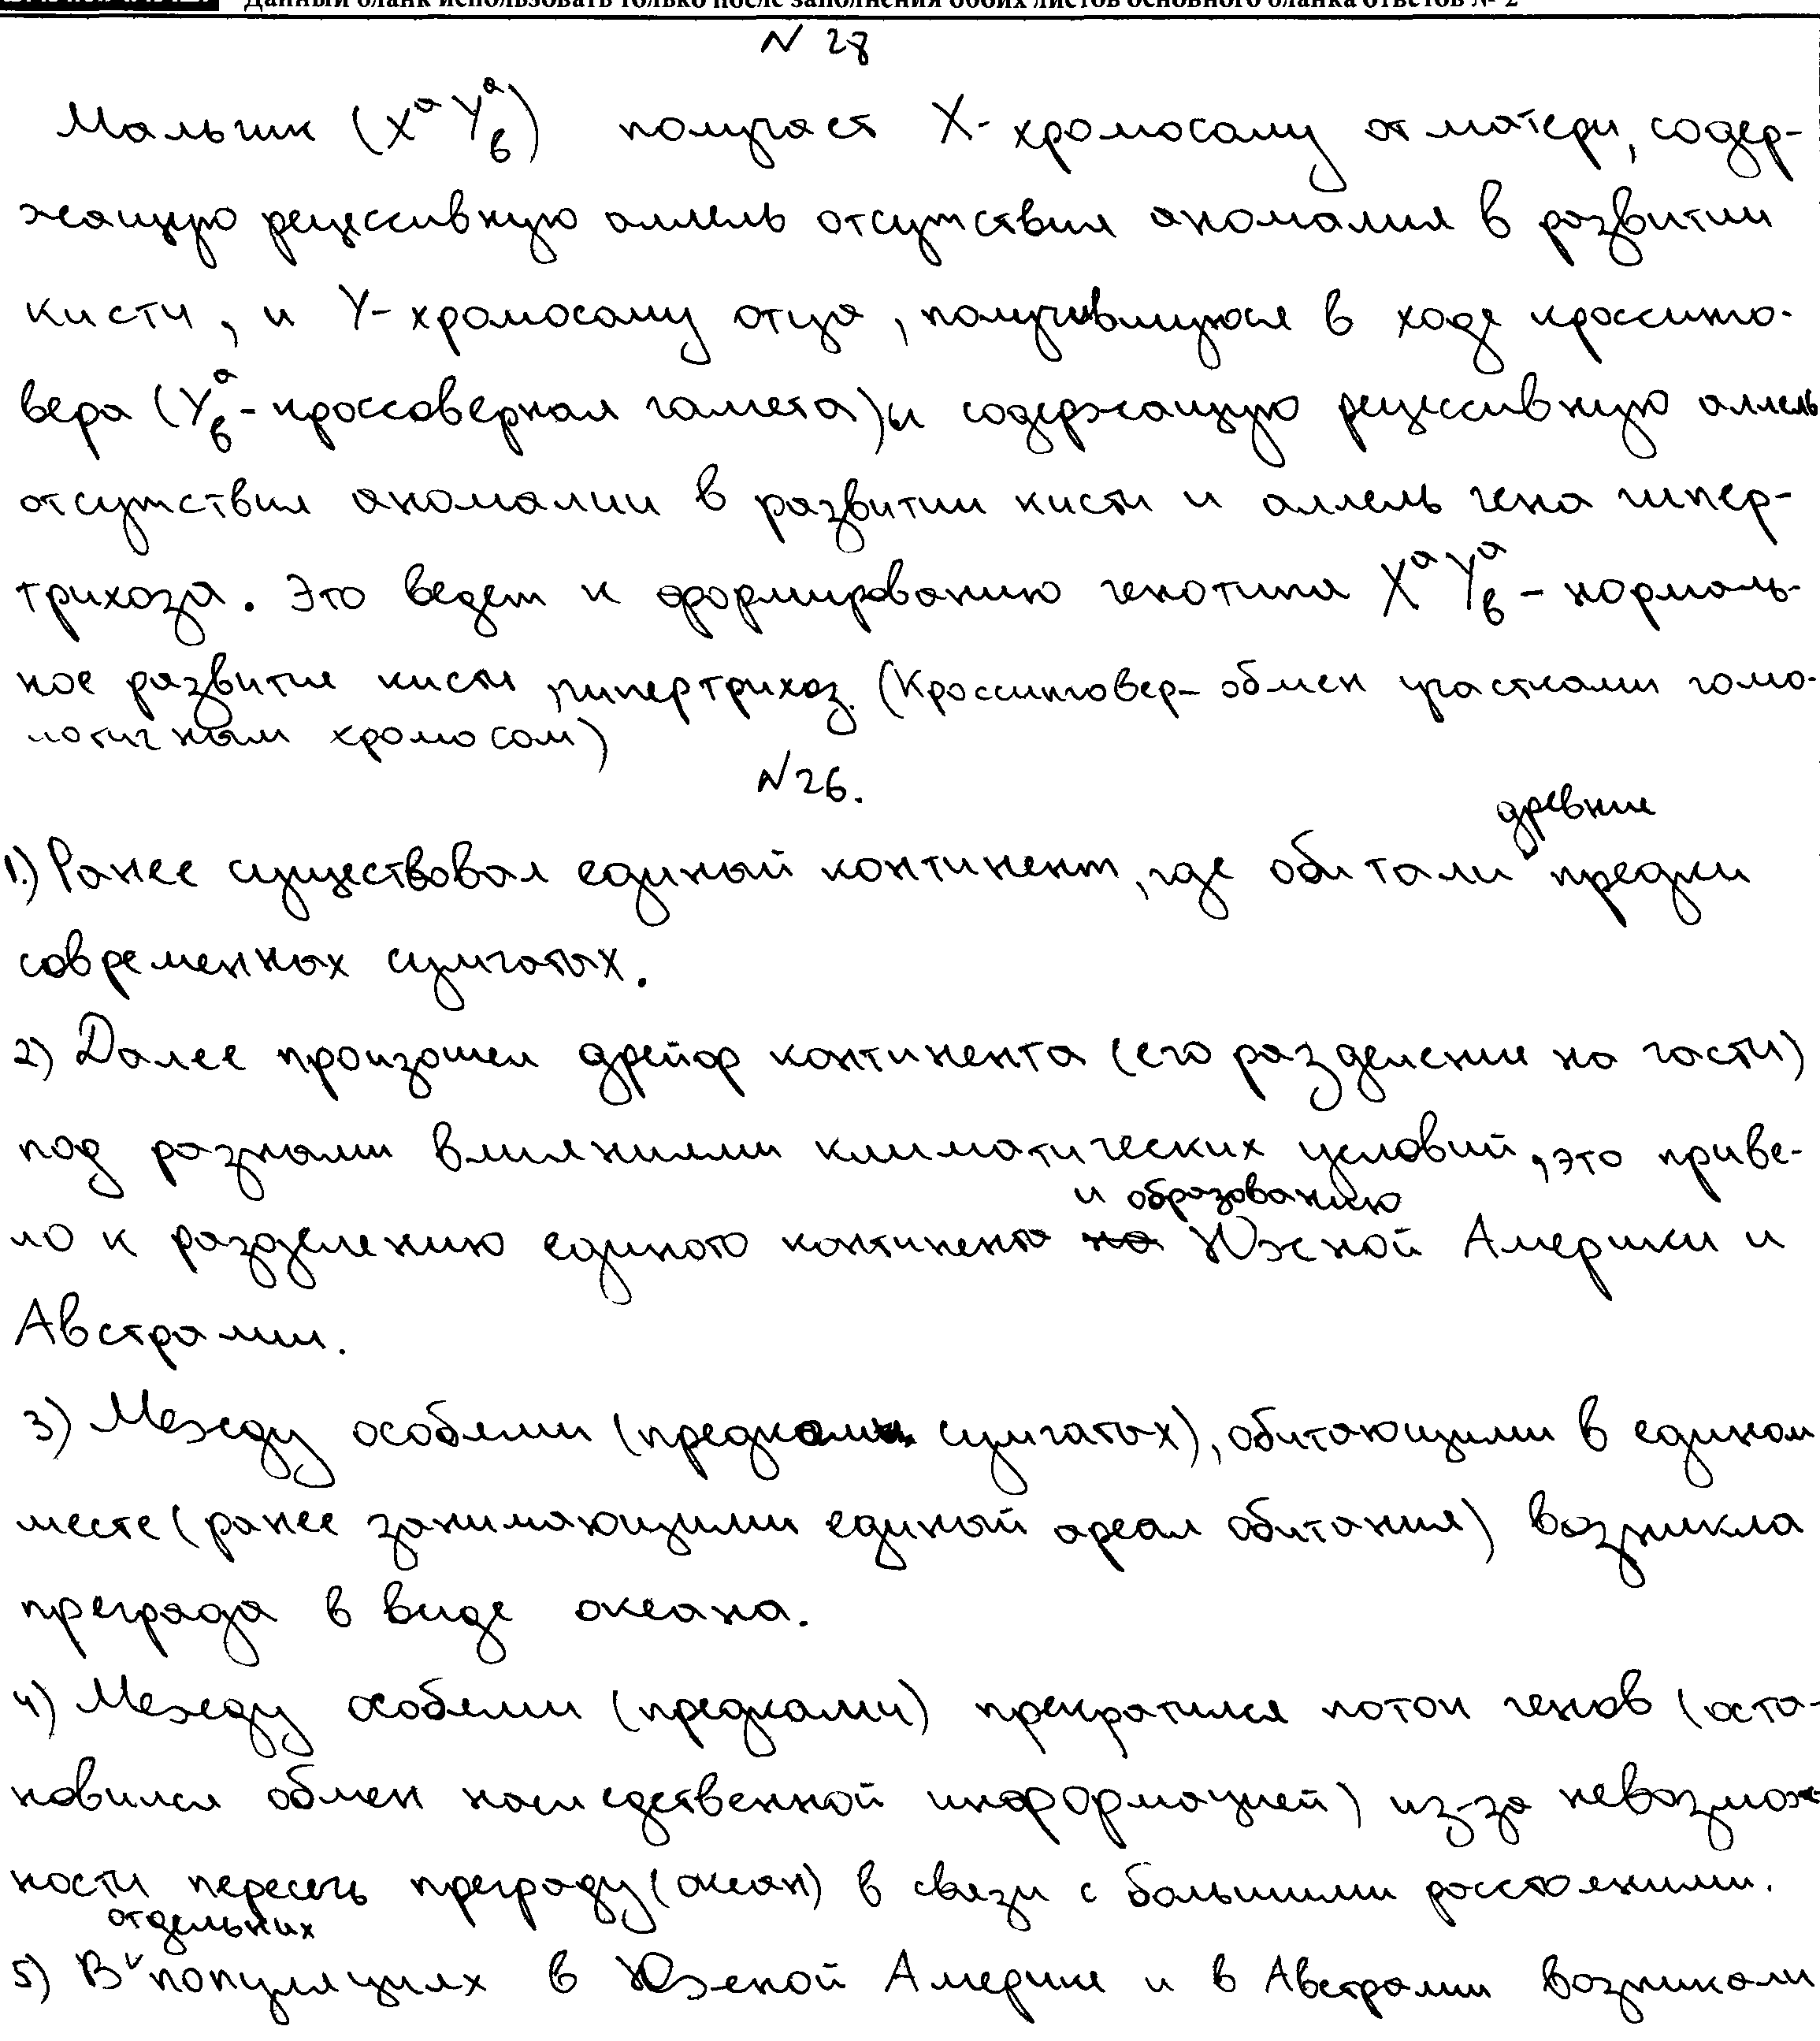 Данный бланк использовать только после заполнения обоих листов основного бланка ответов № 2
N 28
Мальчик (XᵃYᵃb) получает X-хромосому от матери, содер-
жащую рецессивную аллель отсутствия аномалия в развитии
кисти, и Y-хромосому отца, получившуюся в ходе кроссинго-
вера (Yᵃb-кроссоверная гамета) и содержащую рецессивную аллель
отсутствия аномалии в развитии кисти и аллель гена гипер-
трихоза. Это ведет к формированию генотипа XᵃYᵃb - нормаль-
ное развитие кисти, гипертрихоз. (Кроссинговер- обмен участками гомо-
логичным хромосом)
N26.
1.) Ранее существовал единый континент, где обитали древние предки
современных сумчатых.
2) Далее произошел дрейф континента (его разделение на части)
под разными влияниями климатических условий, это приве-
ло к разделению единого континента и образованию Южной Америки и
Австралии.
3) Между особями (предками сумчатых), обитающими в едином
месте (ранее занимающими единый ареал обитания) возникла
преграда в виде океана.
4) Между особями (предками) прекратился поток генов (оста-
новился обмен наследственной информацией) из-за невозмож-
ности пересечь преграду (океан) в связи с большими расстояниями.
5) В отдельных популяциях в Южной Америке и в Австралии возникали